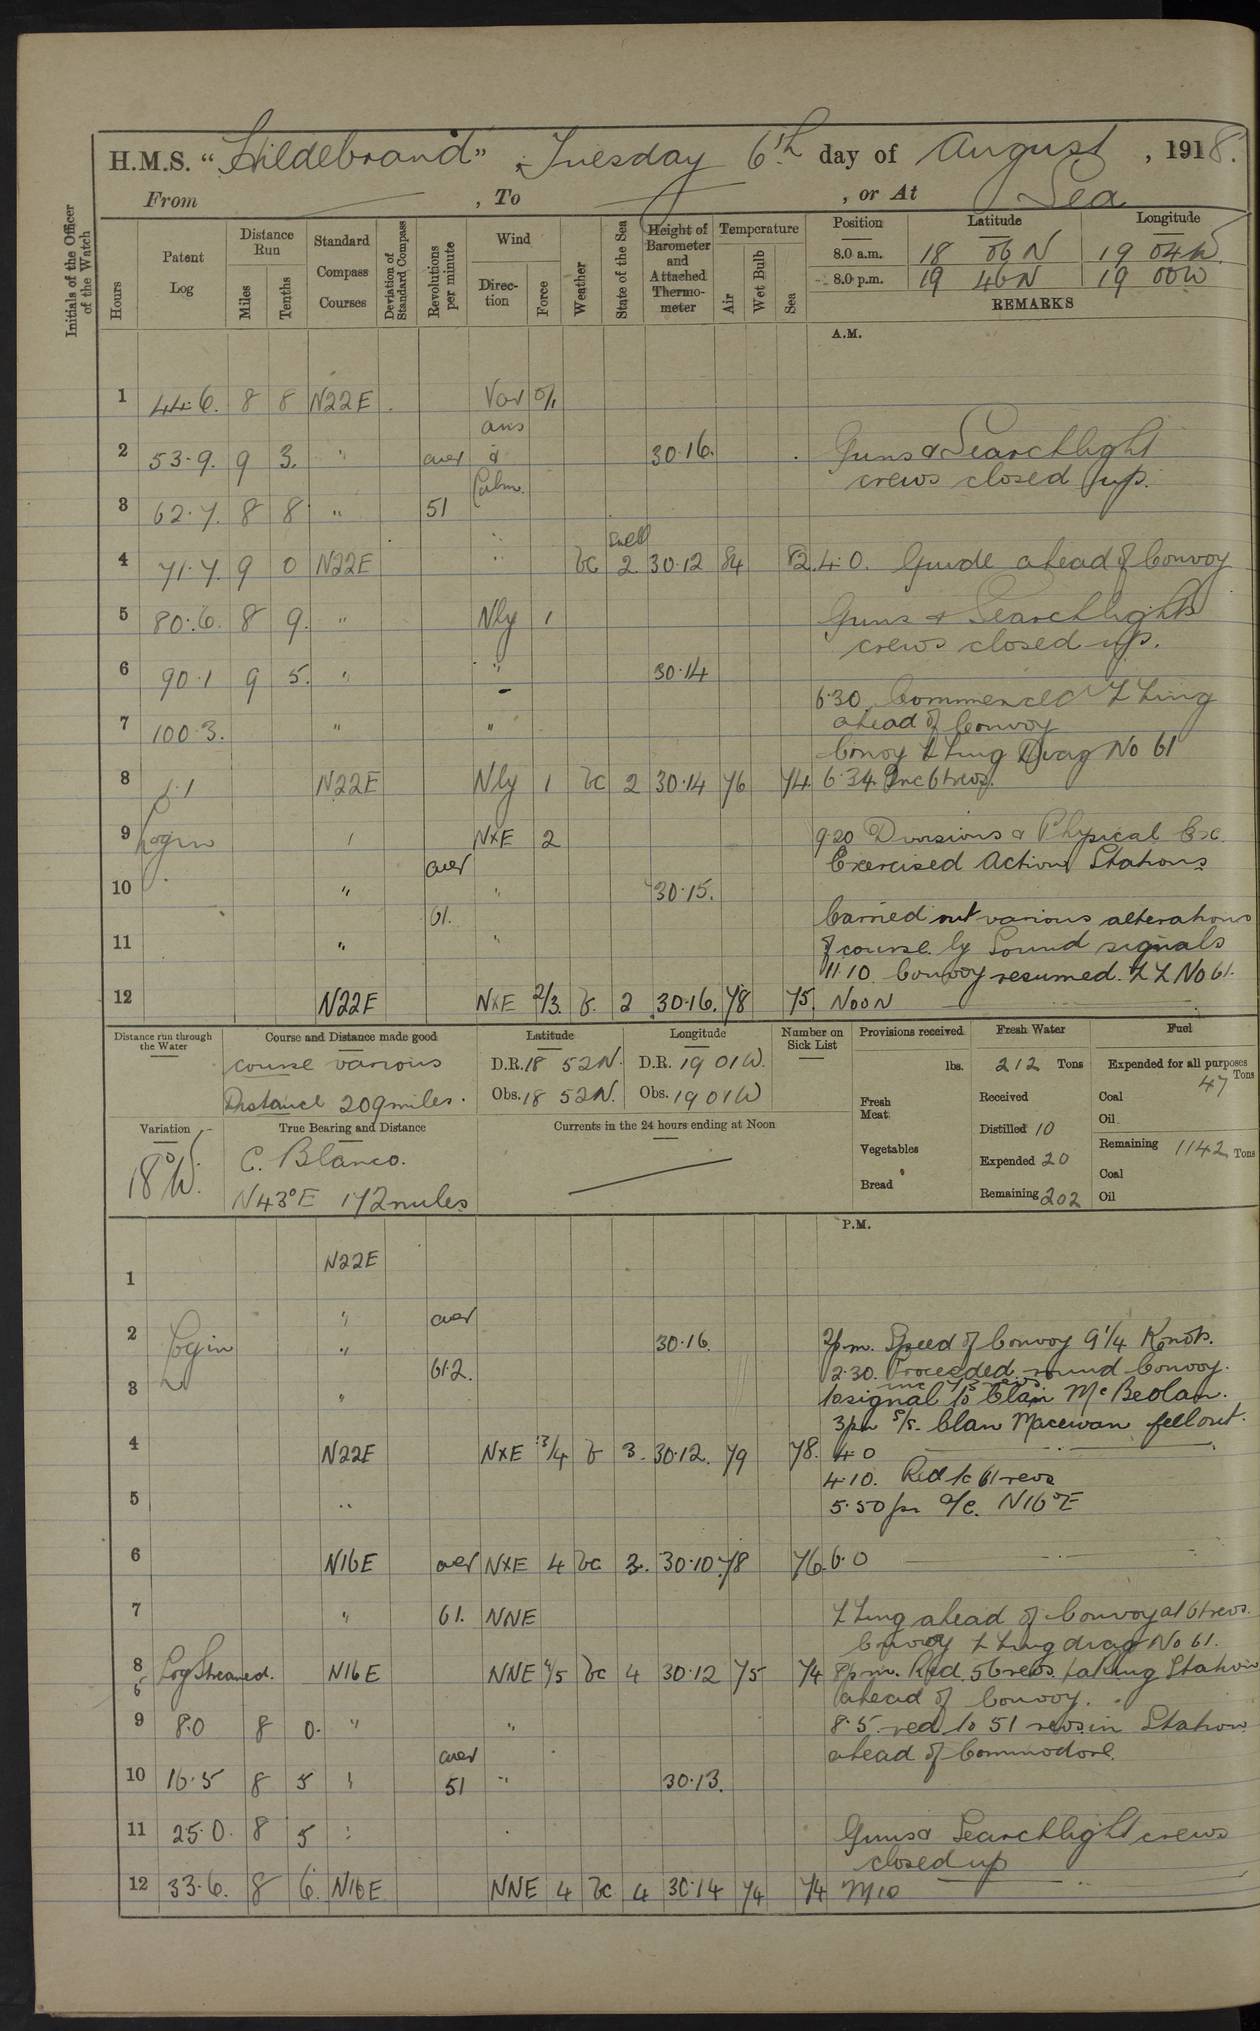 H.M.S. "Hildebrand", Tuesday 6th day of August, 1918.
From , To , or At Sea
Initials of the Officer of the Watch
Hours
Patent Log
Distance Run
Miles
Tenths
Standard Compass Courses
Deviation of Standard Compass
Revolutions per minute
Wind
Direction
Force
Weather
State of the Sea
Height of Barometer and Attached Thermometer
Temperature
Air
Wet Bulb
Sea
Position Latitude Longitude
8.0 a.m. 18 06 N 19 04 W.
8.0 p.m. 19 46 N 19 00 W
REMARKS
A.M.
1 44.6. 8 8 N22E Var 0/1
airs
2 53.9. 9 3. " aver & 30.16. Guns & Searchlight
Calm. crews closed up.
3 62.7. 8 8 " 51
Swell
4 71.7. 9 0 N22E " bc 2 30.12 84 82. 4.0. Guide ahead of Convoy
5 80.6. 8 9. " Nly 1 Guns & Searchlights
crews closed up.
6 90.1 9 5. " " 30.14
6.30. Commenced Z Zing
7 100.3. " " ahead of Convoy
Convoy Z Zing Diag No 61
8 1.1 N22E Nly 1 bc 2 30.14 76 74. 6.34. Inc 61 revs.
9 Log in " NxE 2 9.20 Divisions & Physical Ex.
aver Exercised Action Stations
10 " " 30.15.
61. Carried out various alterations
11 " " of course by Sound signals
11.10. Convoy resumed. Z Z No 61.
12 N22E NxE 2/3. b. 2 30.16. 78 75. Noon
Distance run through the Water
Course and Distance made good
course various
Distance 209 miles.
Latitude
D.R. 18 52N.
Obs. 18 52N.
Longitude
D.R. 19 01W.
Obs. 19 01W
Number on Sick List
Provisions received
lbs.
Fresh Meat
Vegetables
Bread
Fresh Water
212 Tons
Received
Distilled 10
Expended 20
Remaining 202
Fuel
Expended for all purposes
47 Tons
Coal
Oil
Remaining 1142 Tons
Coal
Oil
Variation
18°W.
True Bearing and Distance
C. Blanco.
N43°E 172 miles
Currents in the 24 hours ending at Noon
P.M.
1 N22E
" aver
2 Log in " 30.16. 2pm. Speed of Convoy 9 1/4 Knots.
61.2. 2.30. Proceeded round Convoy.
3 " to signal to Clan McBeolan.
3pm S/S. Clan Macewan fell out.
4 N22E NxE 3/4 b 3. 30.12. 79 78. 4.0
4.10. Red to 61 revs
5 " 5.50pm a/c. N16°E
6 N16E aver NxE 4 bc 3. 30.10. 78 76. 6.0
7 " 61. NNE Z Zing ahead of Convoy at 61 revs.
Convoy Z Zing diag No 61.
8 Log Streamed. N16E NNE 4/5 bc 4 30.12 75 74 8pm. Red. 56 revs. taking Station
ahead of Convoy.
9 8.0 8 0. " " 8.5. red. to 51 revs. in Station
aver ahead of Commodore.
10 16.5 8 5 " 51 " 30.13.
11 25.0. 8 5 " Guns & Searchlight crews
closed up
12 33.6. 8 6. N16E NNE 4 bc 4 30.14 74 74